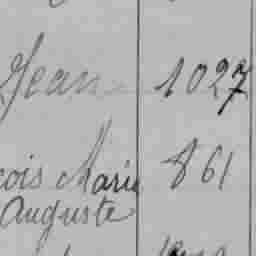 Jean 1027
çois Marie 861
Auguste